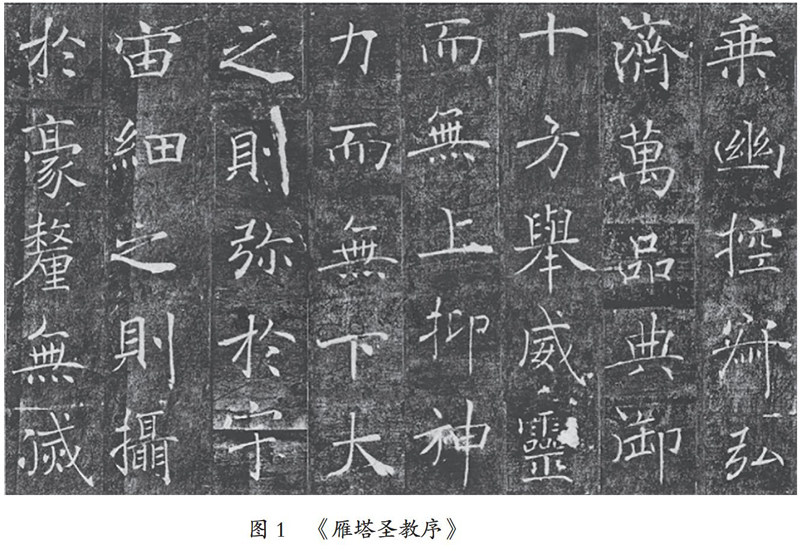 乘幽控寂弘
濟萬品典御
十方舉威靈
而無上抑神
力而無下大
之則弥於宇
宙細之則攝
於豪釐無滅
图 1 《雁塔圣教序》